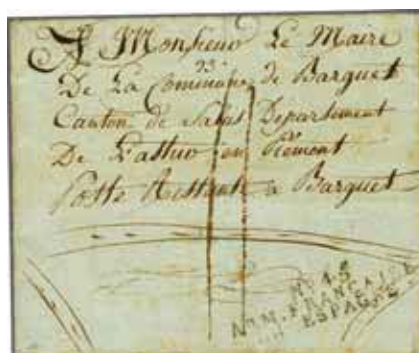 A Monsieur Le Maire
De La Commune de Barguet
Canton de Département
De en Piémont
Poste Restante a Barguet
No 43
ARM. FRANÇAISE
ESPAGNE